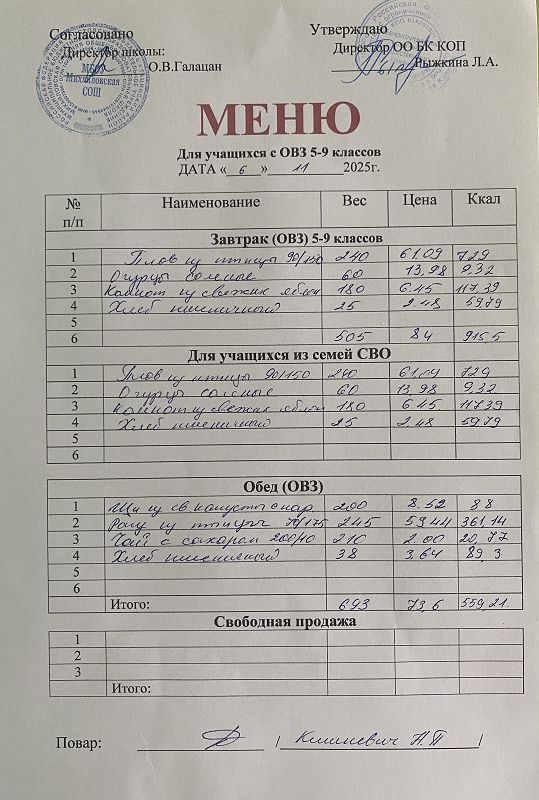 Согласовано Утверждаю
Директор школы: Директор ОО БК КОП
О.В.Галацан Рыжкина Л.А.
МБОУ
Михайловская
СОШ
МЕНЮ
Для учащихся с ОВЗ 5-9 классов
ДАТА « 6 » 11 2025г.
№ п/п Наименование Вес Цена Ккал
Завтрак (ОВЗ) 5-9 классов
1 Плов из птицы 90/150 240 61.09 729
2 Огурцы соленые 60 13,98 9.32
3 Компот из свежих яблок 180 6.45 117,39
4 Хлеб пшеничный 25 2.48 59,79
5
6 505 84 915,5
Для учащихся из семей СВО
1 Плов из птицы 90/150 240 61,09 729
2 Огурцы соленые 60 13,98 9,32
3 Компот из свежих яблок 180 6.45 117,39
4 Хлеб пшеничный 25 2.48 59,79
5
6
Обед (ОВЗ)
1 Щи из св капусты с кар 200 8.52 88
2 Рагу из птицы 70/175 245 59,44 361,14
3 Чай с сахаром 200/10 210 2.00 20,77
4 Хлеб пшеничный 38 3,64 89,3
5
6
Итого: 693 73,6 559,21
Свободная продажа
1
2
3
Итого:
Повар: / Климкевич Н.П /